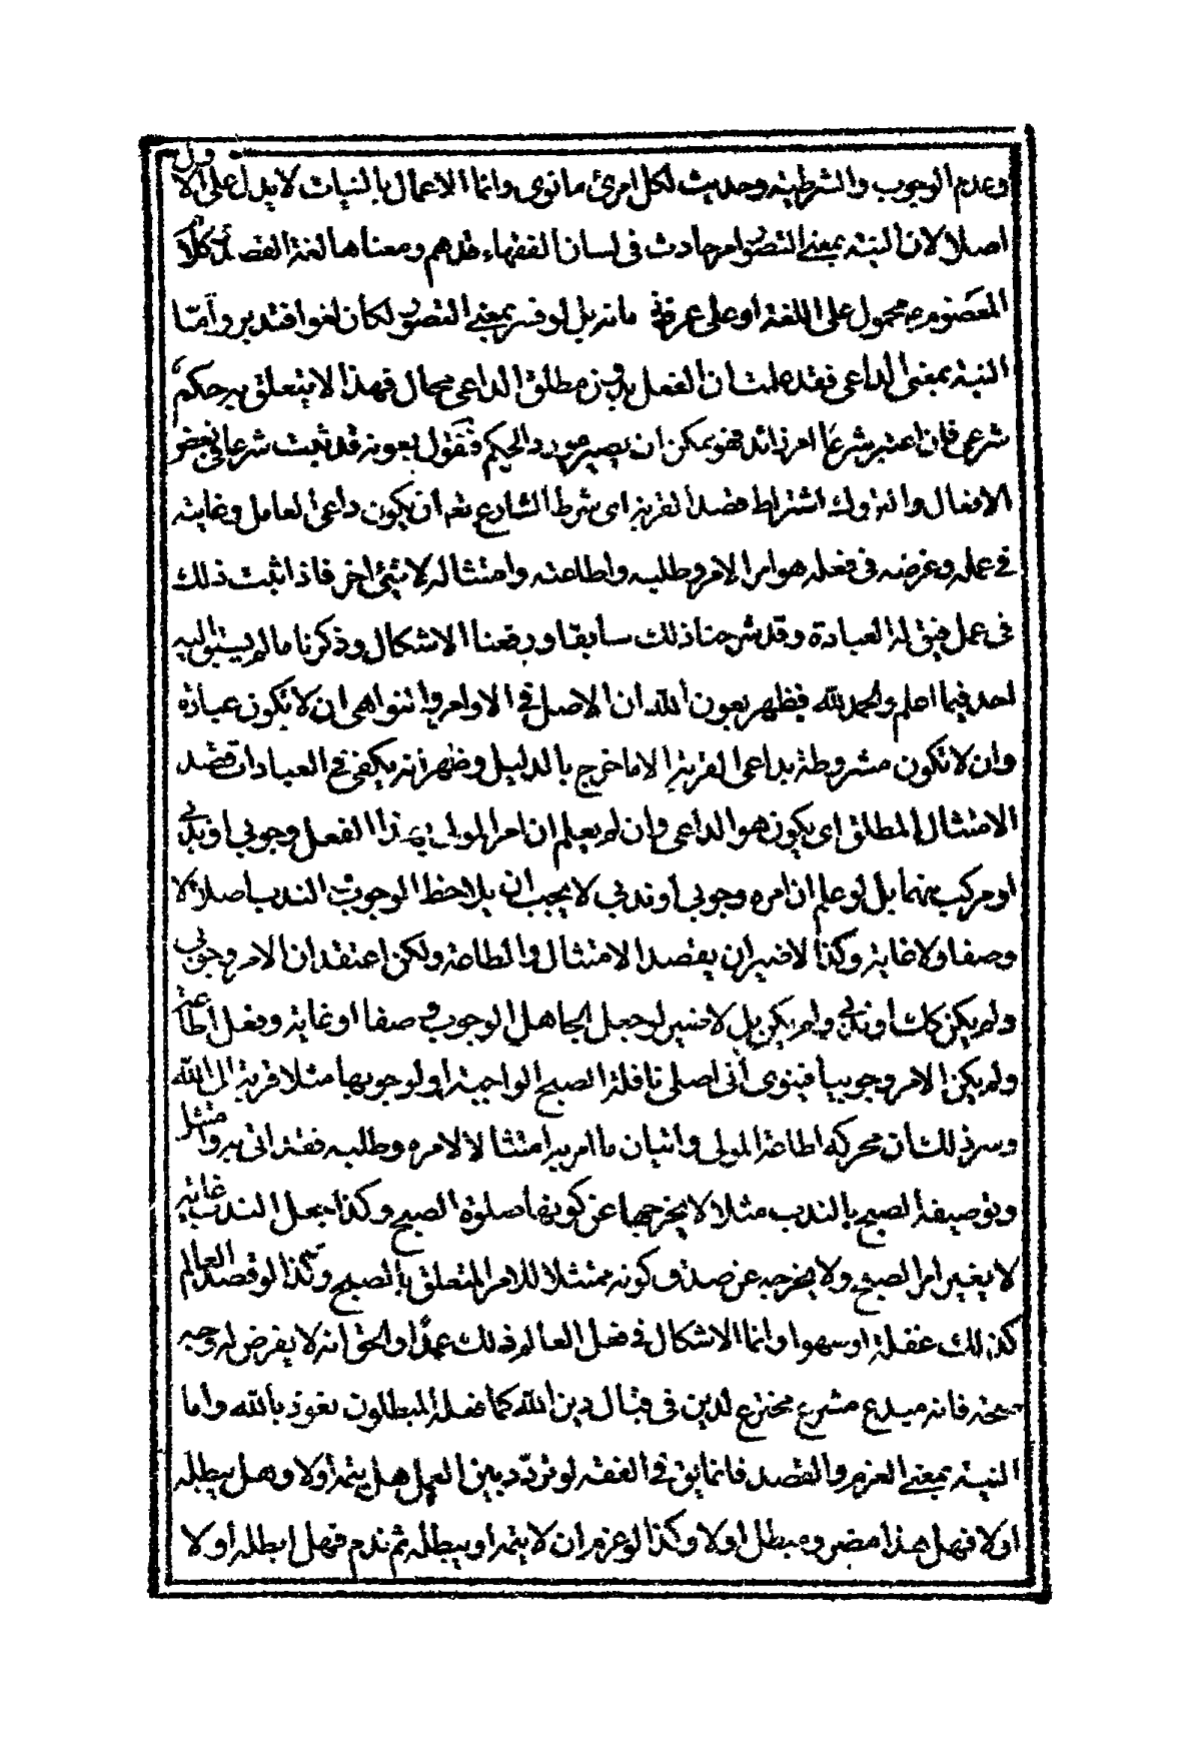 وعدم الوجوب والشرطية وحديث لكل امرئ ما نوى وانما الاعمال بالنيات لا يدل على الاول
اصلا لان النية بمعنى التصور امر حادث فى لسان الفقهاء ومعناها لغة القصد كلام
المعصوم ع محمول على اللغة او على عرف زمانه بل لو فسر بمعنى التصور لكان لغوا فتدبر واما
النية بمعنى الداعى فقد علمت ان الفعل بدون مطلق الداعى محال فهذا لا يتعلق به حكم
شرعى فان اعتبر شرعا امر زائد فهو يمكن ان يصير مورد الحكم فنقول بعونه قد ثبت شرعا فى بعض
الافعال والتروك اشتراط قصد القربة اى شرط الشارع فيه ان يكون داعى العامل وغايته
فى عمله وغرضه فى فعله هو امر الامر وطلبه واطاعته وامتثاله لا شئ اخر فاذا ثبت ذلك
فى عمل فيق له العبادة وقد شرحنا ذلك سابقا ورفعنا الاشكال وذكرنا ما لم يسبق اليه
احد فيما اعلم والحمد لله فظهر بعون الله ان الاصل فى الاوامر والنواهى ان لا تكون عبادة
وان لا تكون مشروطة بداعى القربة الا ما خرج بالدليل وظهر انه يكفى فى العبادات قصد
الامتثال المطلق اى يكون هو الداعى وان لم يعلم ان امر المولى بهذا الفعل وجوبى او ندبى
او مركب منهما بل لو علم ان امره وجوبى او ندبى لا يجب ان يلاحظ الوجوب والندب اصلا لا
وصفا ولا غاية وكذا لا ضير ان يقصد الامتثال والطاعة ولكن اعتقد ان الامر وجوبى
ولم يكن كك او ندبى ولم يكن بل لا ضير لو جعل الجاهل الوجوب وصفا او غاية وفعل اطاعة
ولم يكن الامر وجوبيا فينوى أنى اصلى نافلة الصبح الواجبة او لوجوبها مثلا قربة الى الله
وسر ذلك ان محركه اطاعة المولى واتيان ما امر به امتثالا لامره وطلبه فقد اتى به وامتثل
وتوصيفه الصبح بالندب مثلا لا يخرجها عن كونها صلوة الصبح وكذا جعل الندب غاية
لا يغير امر الصبح ولا يخرجه عن صدق كونه ممتثلا للامر المتعلق بالصبح وكذا لو قصد العالم
كذلك غفلة او سهوا وانما الاشكال فى فعل العالم ذلك عمدا والحق انه لا يفرض له وجه
صحة فانه مبدع مشرع مخترع لدين فى قبال دين الله كما فعله المبطلون نعوذ بالله واما
النية بمعنى العزم والقصد فانما يق فى الفقه لو تردد بين العمل هل يتمه اولا وهل يبطله
اولا فهل هذا مضر ومبطل اولا وكذا لو عزم ان لا يتمه او يبطله ثم ندم فهل ابطله اولا